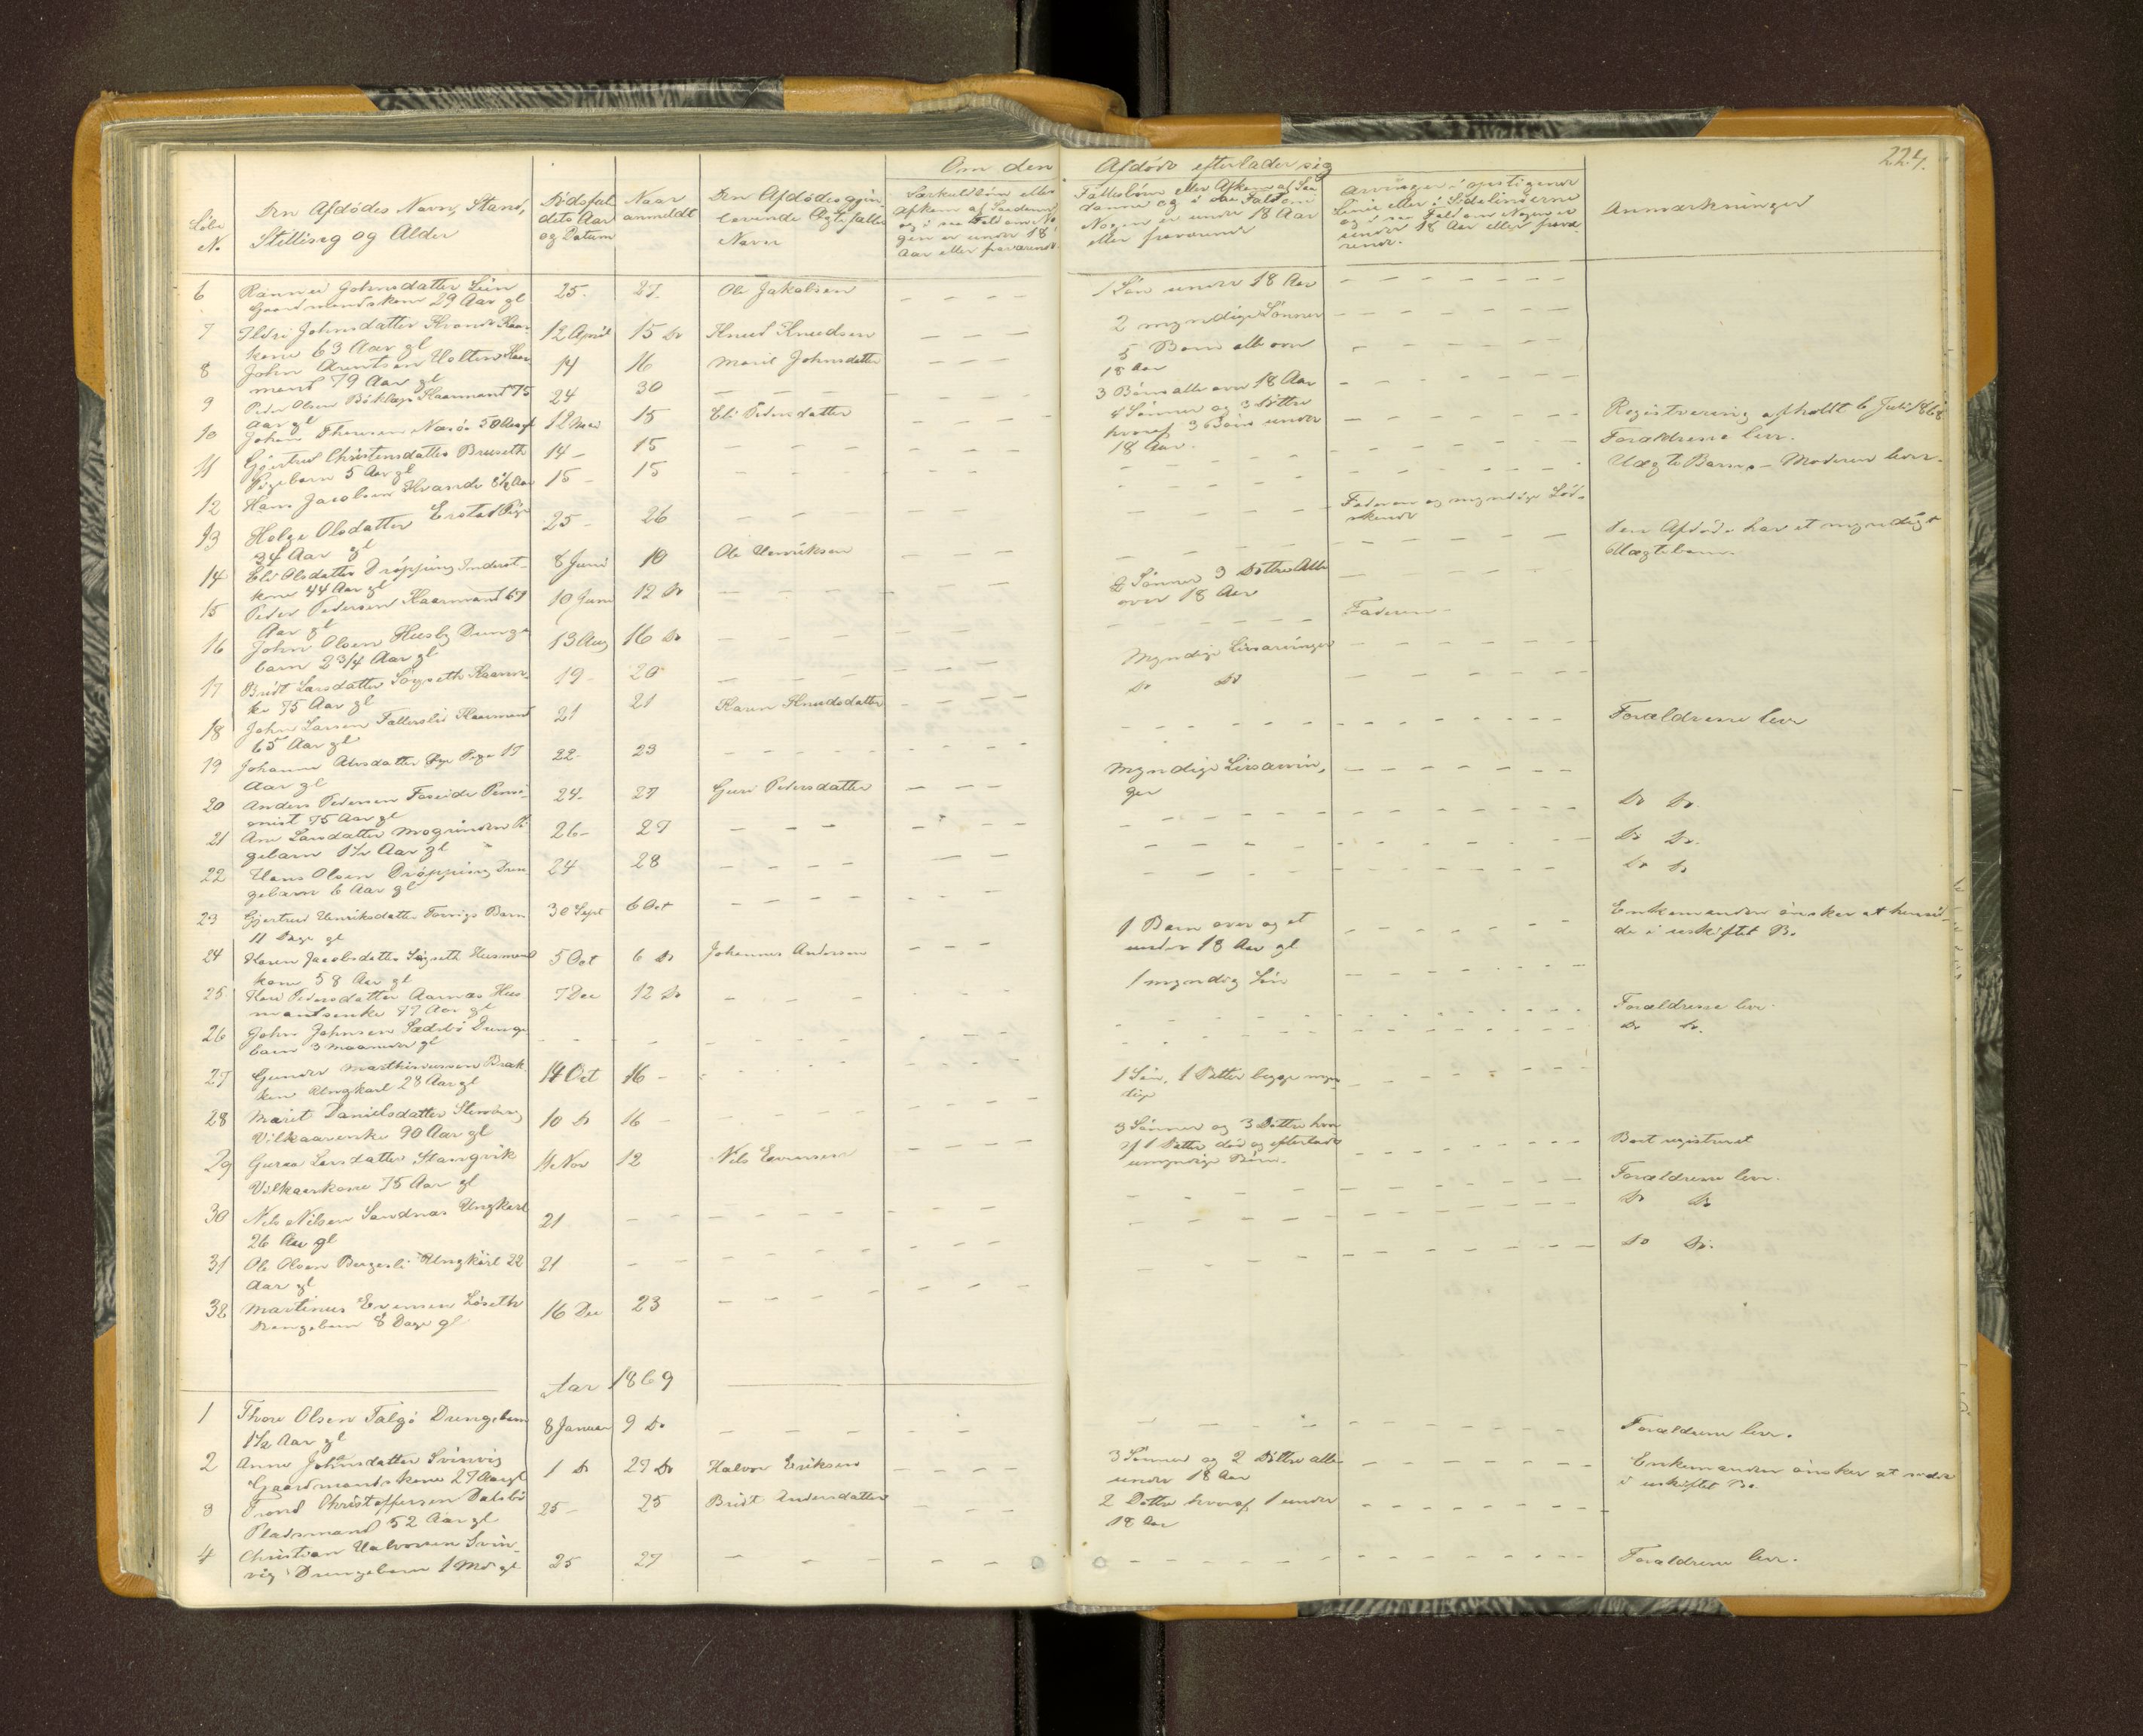 224.
Om den Afdöde efterlader sig
Löbe
N.
Den Afdödes Navn, Stand,
Stilling og Alder
Dödsfal
dets Aar
og Datum
Naar
anmeldt
Den Afdödes gjen
levende Ægtefælles
Navn
Særkuldbörn eller
Afkom af Saadanne
og i saa Fald om No
gen er under 18
Aar eller fraværende
Fællesbörn eller Afkom af Saa
danne og i saa Fald om
Nogen er under 18 Aar
eller fraværende
Arvinger i opstigende
Linie eller i Sidelinierne
og i saa Fald om Nogen er
under 18 Aar eller fravæ
rende.
Anmærkninger
6 Johnsdatter 25. 27. Ole Jakobsen – – – 1 Sön under 18 Aar – – –
Gaardmandskone 29 Aar gl
7 Ildri Johnsdatter Kvande Kaar 12 April 15 Do Knud Knudsen – – – 2 myndige Sönner – – –
kone 63 Aar gl
8 John Arentsen Holten Kaar 14 16 Marit Johnsdatter – – – 5 Börn alle over – – –
mand 79 Aar gl 18 Aar
9 Peder Olsen Kaarmand 75 24 30 – – – 3 Börn alle over 18 Aar – – –
Aar gl
10 Johan Næsö 50 Aar gl 12 Mai 15 Eli Pedersdatter – – – 4 Sönner og 3 Döttre – – – Registrering afholdt 6 Juli 1868
hvoraf 3 Börn under
18 Aar.
11 Gjertrud Christensdatter Bruseth 14 – 15 – – – Forældrene lever.
Pigebarn 5 Aar gl
12 Hans Jacobsen Kvande Aar 15 – 15 – – – Uægte Barn – Moderen lever.
13 Helge Olsdatter Erstad Pige 25 – 26 – – – Faderen og myndige Söd-
skende
34 Aar gl
Den Afdöde har et myndigt
Uægtebarn.
14 Eli Olsdatter Dröpping Inderst 8 Juni 10 Ole Henriksen – – –
kone 44 Aar gl
15 Peder Pedersen Kaarmand 67 10 Juni 12 Do – – – 2 Sönner 3 Döttre Alle – – –
Aar gl over 18 Aar
16 John Olsen Husby Drenge 13 Aug 16 Do – – – Faderen –
barn 2 3/4 Aar gl
17 Bridt Larsdatter Sögseth Kaaren 19 – 20 – – – Myndige Livsarvinger – – –
ke 75 Aar gl
18 John Larsen Kaarmand 21 21 Karen Knudsdatter – – – Do Do – – –
65 Aar gl
19 Johanne Pige 17 22 – 23 – – – Forældrene lever
Aar gl
20 Anders Pedersen Foseide Pensi- 24 – 27 Guri Pedersdatter – – – Myndige Livsarvin- – – –
onist 75 Aar gl ger
21 Ane Larsdatter Mogrinden Pi 26 – 27 – – – Do Do.
gebarn 1½ Aar gl
22 Hans Olsen Dröpping Dren 24 28 – – – Do Do.
gebarn 6 Aar gl
23 Gjertrud Henriksdatter Barn 30 Sept 6 Oct – – – Do Do
11 Dage gl
24 Karen Jacobsdatter Sögseth Husmand 5 Oct 6 Do Johannes Andersen – – – 1 Barn over og et – – – Enkemanden önsker at hensid-
kone 58 Aar gl under 18 Aar gl de i uskiftet Bo
25 Kari Pedersdatter Aarnæs Hus 7 Dec 12 Do – – – 1 myndig Sön – – –
mandsenke 77 Aar gl
26 John Johnsen Sædsbö Drenge – – – Forældrene lever.
barn 3 Maaneder gl
27 Gunder Marthinussen Bræk 14 Oct 16 – – – – Do Do.
ken Ungkarl 28 Aar gl
28 Marit Danielsdatter Stenberg 10 Do 16 – – – – 1 Sön, 1 Datter begge myn
Vilkaarsenke 90 Aar gl dige
29 Guroe Larsdatter Stangvik 4 Nov 12 Nils Evensen – – – 3 Sönner og 3 Döttre hvor
Vilkaarskone 75 Aar gl af 1 Datter död og efterlader – – – Boet registreret
umyndige Börn.
30 Nils Nilsen Sandnæs Ungkarl 21 – – – Forældrene lever.
26 Aar gl
31 Ole Olsen Bergesli Ungkarl 22 21 – – – Do Do
Aar gl
32 Martinus Evensen Löseth 16 Dec 23 – – – Do Do.
Drengebarn 8 Dage gl
Aar 1869
1 Thore Olsen Talgö Drengebarn 8 Januar 9 Do – – – Forældrene lever.
1½ Aar gl
2 Anne Johnsdatter Svinvig 1 Do 27 Do Halvor Eriksen – – – 3 Sönner og 2 Döttre alle – – – Enkemanden önsker at sidde
Gaardmandskone 27 Aar gl under 18 Aar i uskiftet Bo
3 Trond Christoffersen Dalsbö 25 – 25 Bridt Andersdatter – – – 2 Döttre hvoraf 1 under – – –
Pladsmand 52 Aar gl 18 Aar
4 Christian Halvorsen Svin- 25 27 – – – Forældrene lever.
vig Drengebarn 1 Md gl